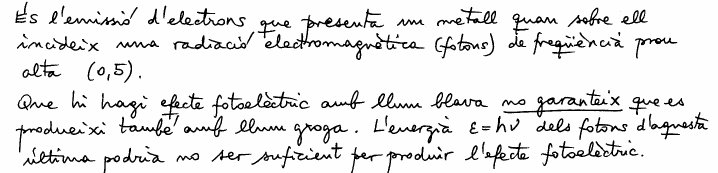 És l'emissió d'electrons que presenta un metall quan sobre ell
incideix una radiació electromagnètica (fotons) de freqüència prou
alta (0,5).
Que hi hagi efecte fotoelèctric amb llum blava no garanteix que es
produeixi també amb llum groga. L'energia ε=hν dels fotons d'aquesta
última podria no ser suficient per produir l'efecte fotoelèctric.